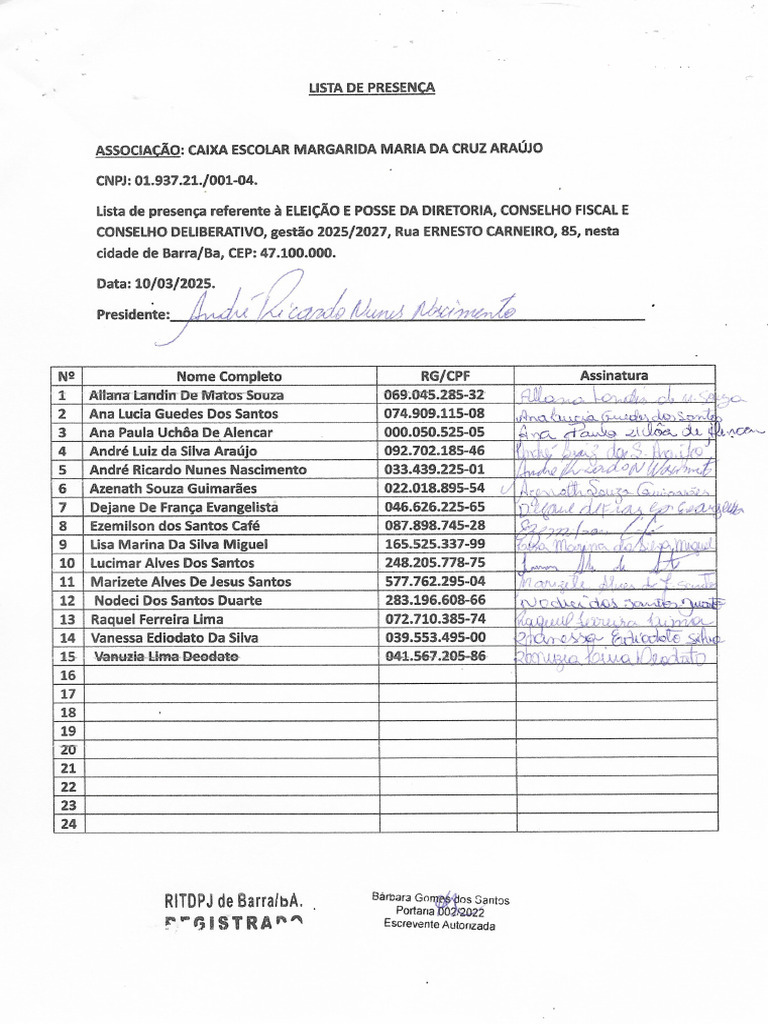 LISTA DE PRESENÇA
ASSOCIAÇÃO: CAIXA ESCOLAR MARGARIDA MARIA DA CRUZ ARAÚJO
CNPJ: 01.937.21./001-04.
Lista de presença referente à ELEIÇÃO E POSSE DA DIRETORIA, CONSELHO FISCAL E
CONSELHO DELIBERATIVO, gestão 2025/2027, Rua ERNESTO CARNEIRO, 85, nesta
cidade de Barra/Ba, CEP: 47.100.000.
Data: 10/03/2025.
Presidente: André Ricardo Nunes Nascimento
Nº Nome Completo RG/CPF Assinatura
1 Allana Landin De Matos Souza 069.045.285-32 Allana Landin de M. Souza
2 Ana Lucia Guedes Dos Santos 074.909.115-08 Ana Lucia Guedes dos Santos
3 Ana Paula Uchôa De Alencar 000.050.525-05 Ana Paula Uchôa de Alencar
4 André Luiz da Silva Araújo 092.702.185-46 André Luiz da S. Araújo
5 André Ricardo Nunes Nascimento 033.439.225-01 André Ricardo N Nascimento
6 Azenath Souza Guimarães 022.018.895-54 Azenath Souza Guimarães
7 Dejane De França Evangelista 046.626.225-65 Dejane de França Evangelista
8 Ezemilson dos Santos Café 087.898.745-28
9 Lisa Marina Da Silva Miguel 165.525.337-99 Lisa Marina da Silva Miguel
10 Lucimar Alves Dos Santos 248.205.778-75
11 Marizete Alves De Jesus Santos 577.762.295-04 Marizete Alves de J. Santos
12 Nodeci Dos Santos Duarte 283.196.608-66 Nodeci dos Santos Duarte
13 Raquel Ferreira Lima 072.710.385-74 Raquel Ferreira Lima
14 Vanessa Ediodato Da Silva 039.553.495-00 Vanessa Ediodato Silva
15 Vanuzia Lima Deodato 041.567.205-86 Vanuzia Lima Deodato
16
17
18
19
20
21
22
23
24
RITDPJ de Barra/BA.
REGISTRADO
Bárbara Gomes dos Santos
Portaria 002/2022
Escrevente Autorizada